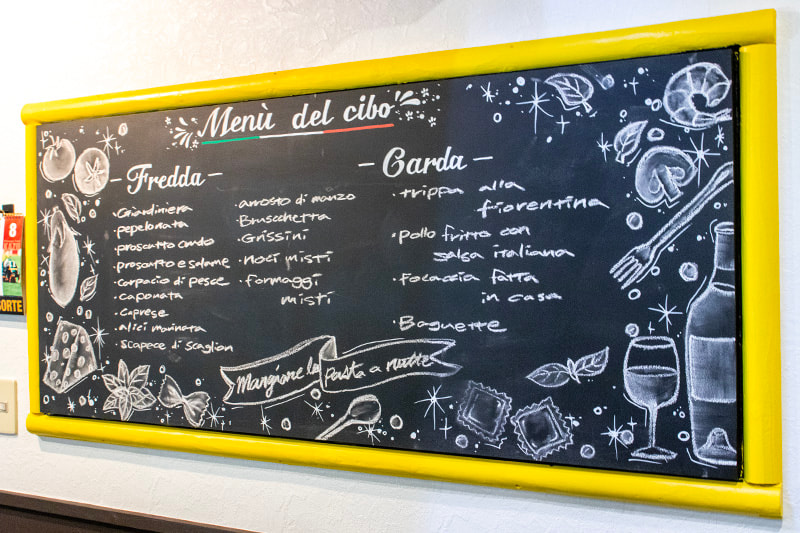 Menù del cibo
- Fredda -
· Giardiniera
· pepelonata
· proscutto crudo
· proscutto e salame
· carpacio di pesce
· caponata
· caprese
· alici marinata
· scapece di scaglion
· arrosto di manzo
· Bruschetta
· Grissini
· noci misti
· formaggi
misti
- Carda -
· trippa alla
fiorentina
· pollo fritto con
salsa italiana
· Focaccia fatta
in casa
· Baguette
Mangione la Pasta a
8
SORTE